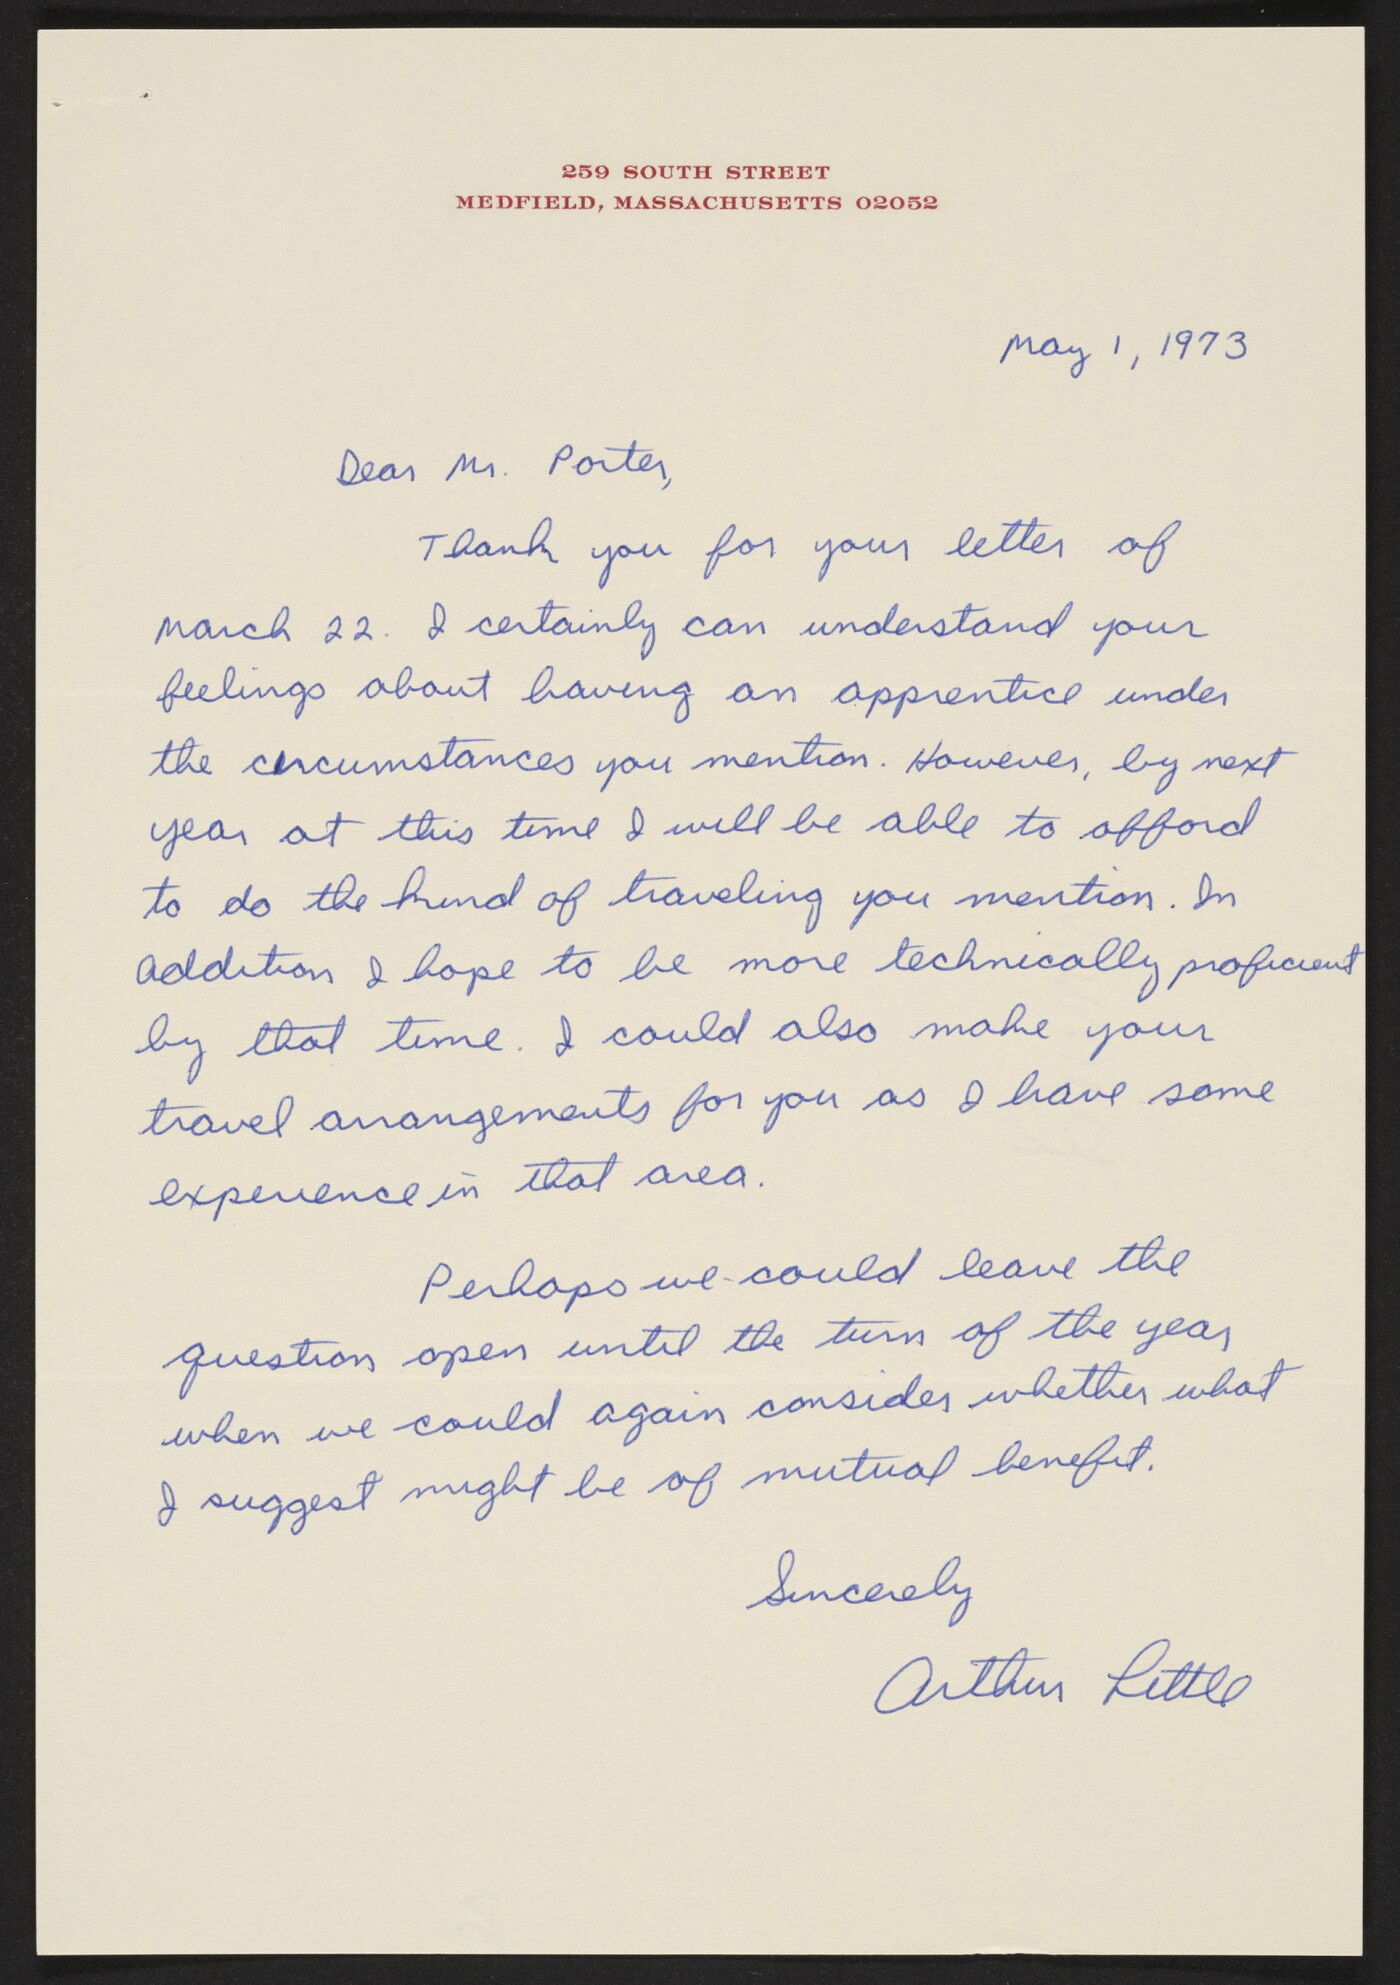 259 SOUTH STREET
MEDFIELD, MASSACHUSETTS 02052
May 1, 1973
Dear Mr. Porter,
Thank you for your letter of
March 22. I certainly can understand your
feelings about having an apprentice under
the circumstances you mention. However, by next
year at this time I will be able to afford
to do the kind of traveling you mention. In
addition I hope to be more technically proficient
by that time. I could also make your
travel arrangements for you as I have some
experience in that area.
Perhaps we could leave the
question open until the turn of the year
when we could again consider whether what
I suggest might be of mutual benefit.
Sincerely
Arthur Little